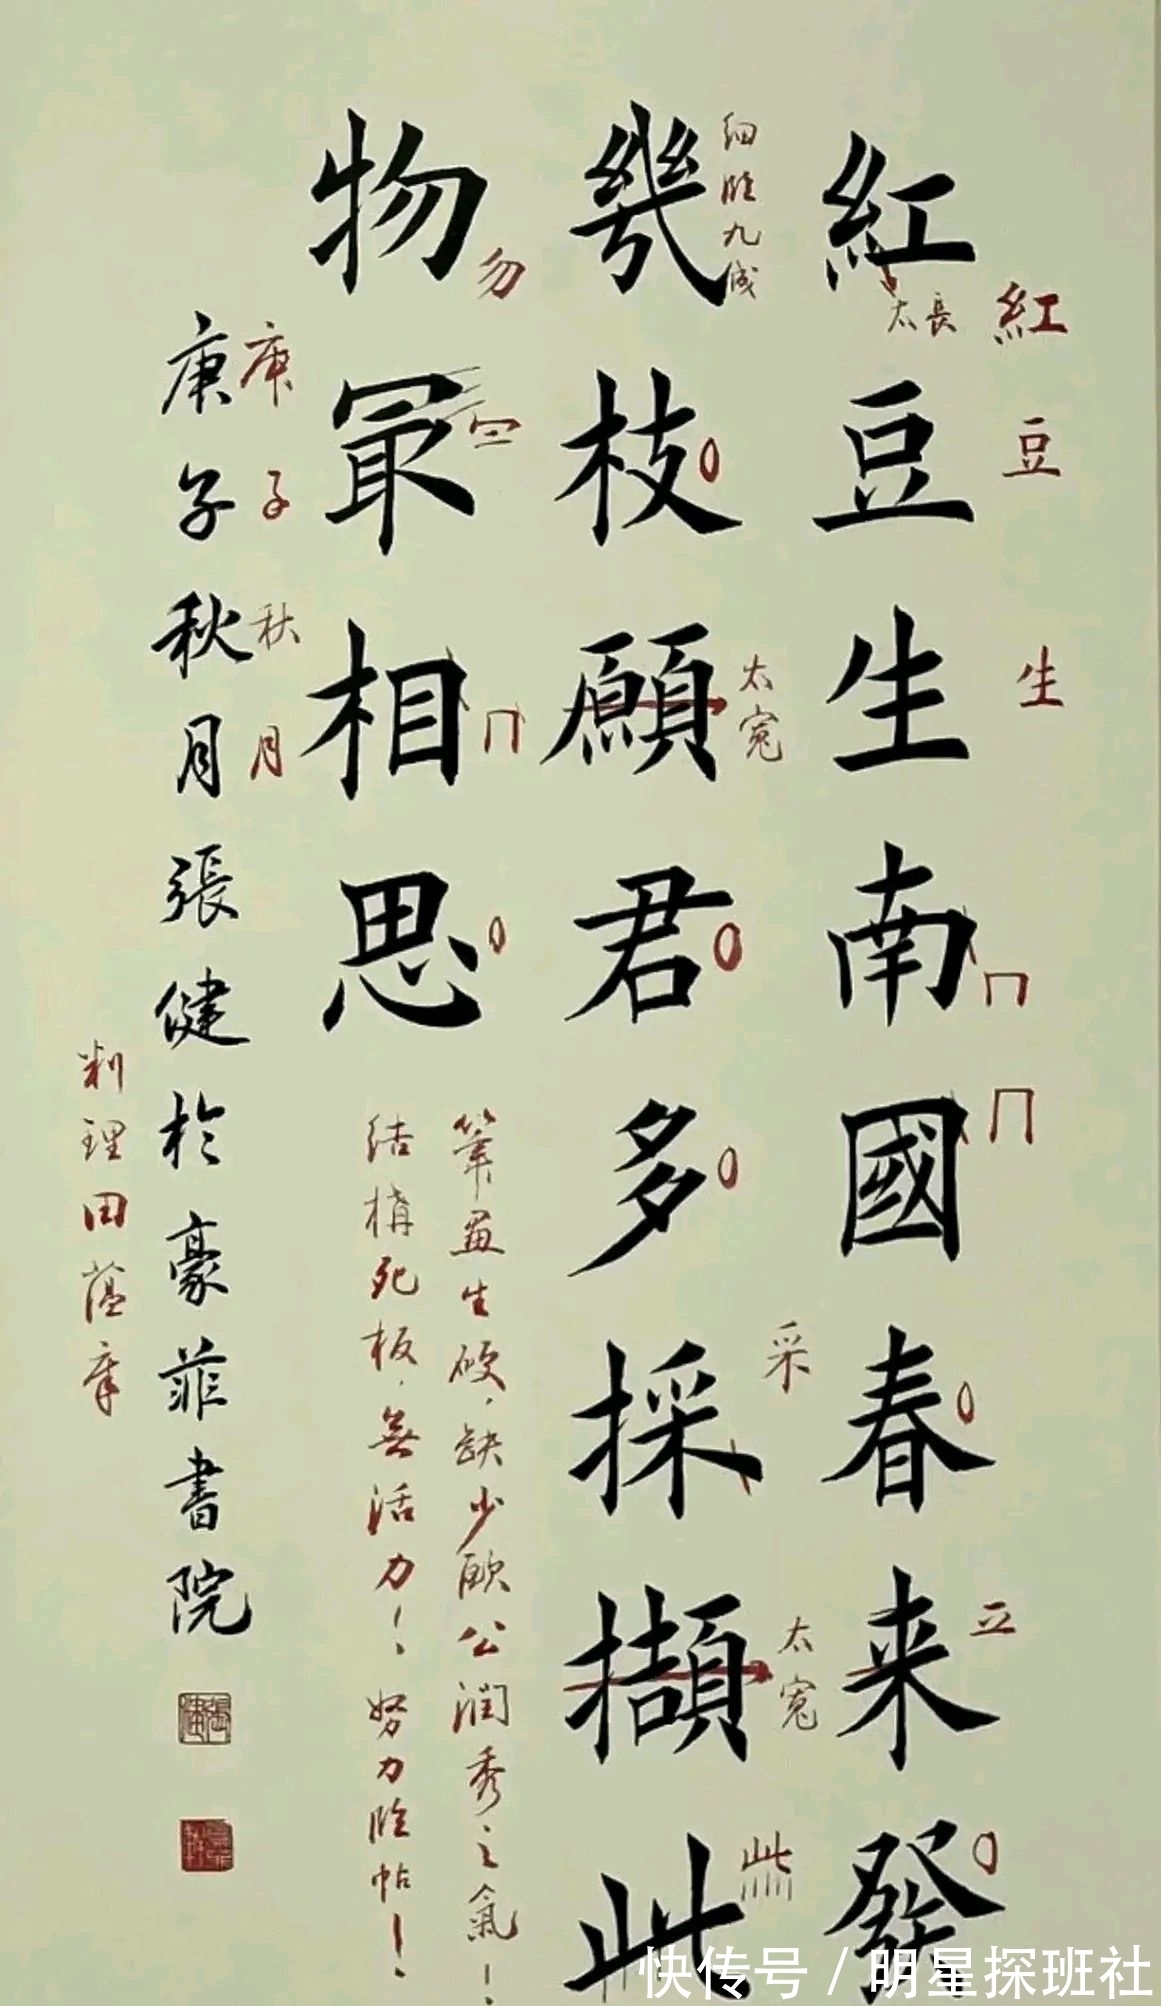 紅豆生南國春来發
幾枝願君多採擷此
物冣相思
庚子秋月張健於豪菲書院
紅
豆
生
太長
立
細臨九成
太寬
采
太寬
此
勿
庚
子
秋
月
筆畫生硬，缺少歐公潤秀之氣！
結構死板，無活力！努力臨帖！
田蘊章
快传号 / 明星探班社